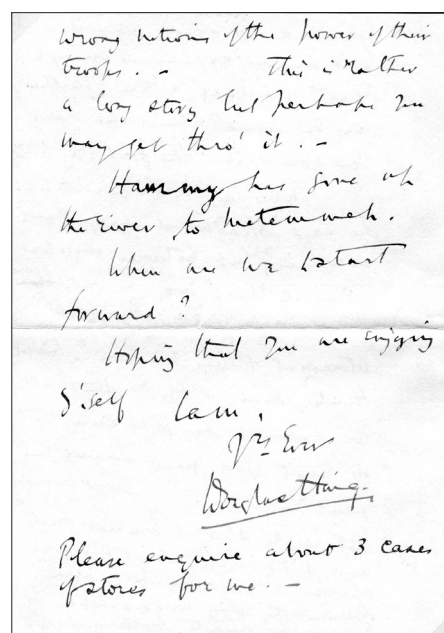 wrong notions of the power of their
troops. – This is rather
a long story but perhaps you
may get thro' it. –
Hammy has gone up
the River to Metemmeh.
When are we to start
forward?
Hoping that you are enjoying
y'self I am,
Yrs Ever
Douglas Haig.
Please enquire about 3 cases
of stores for me. –